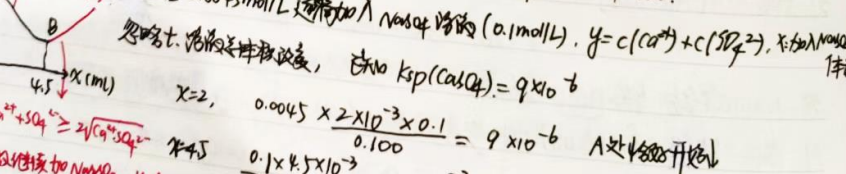 mol/L 逐滴加入 Na₂SO₄ 溶液 (0.1mol/L), y=c(Ca²⁺)+c(SO₄²⁻), x:加入Na₂SO₄
忽略 溶液总体积改变, 已知 Ksp(CaSO₄)=9×10⁻⁶ 体
B
4.5 x(mL)
x=2, 0.0045 × 2×10⁻³×0.1 / 0.100 = 9×10⁻⁶ A处恰好开始↓
²⁺+SO₄²⁻ ≥ 2√Ca²⁺·SO₄²⁻ x=4.5 0.1×4.5×10⁻³
继续加 Na₂SO₄